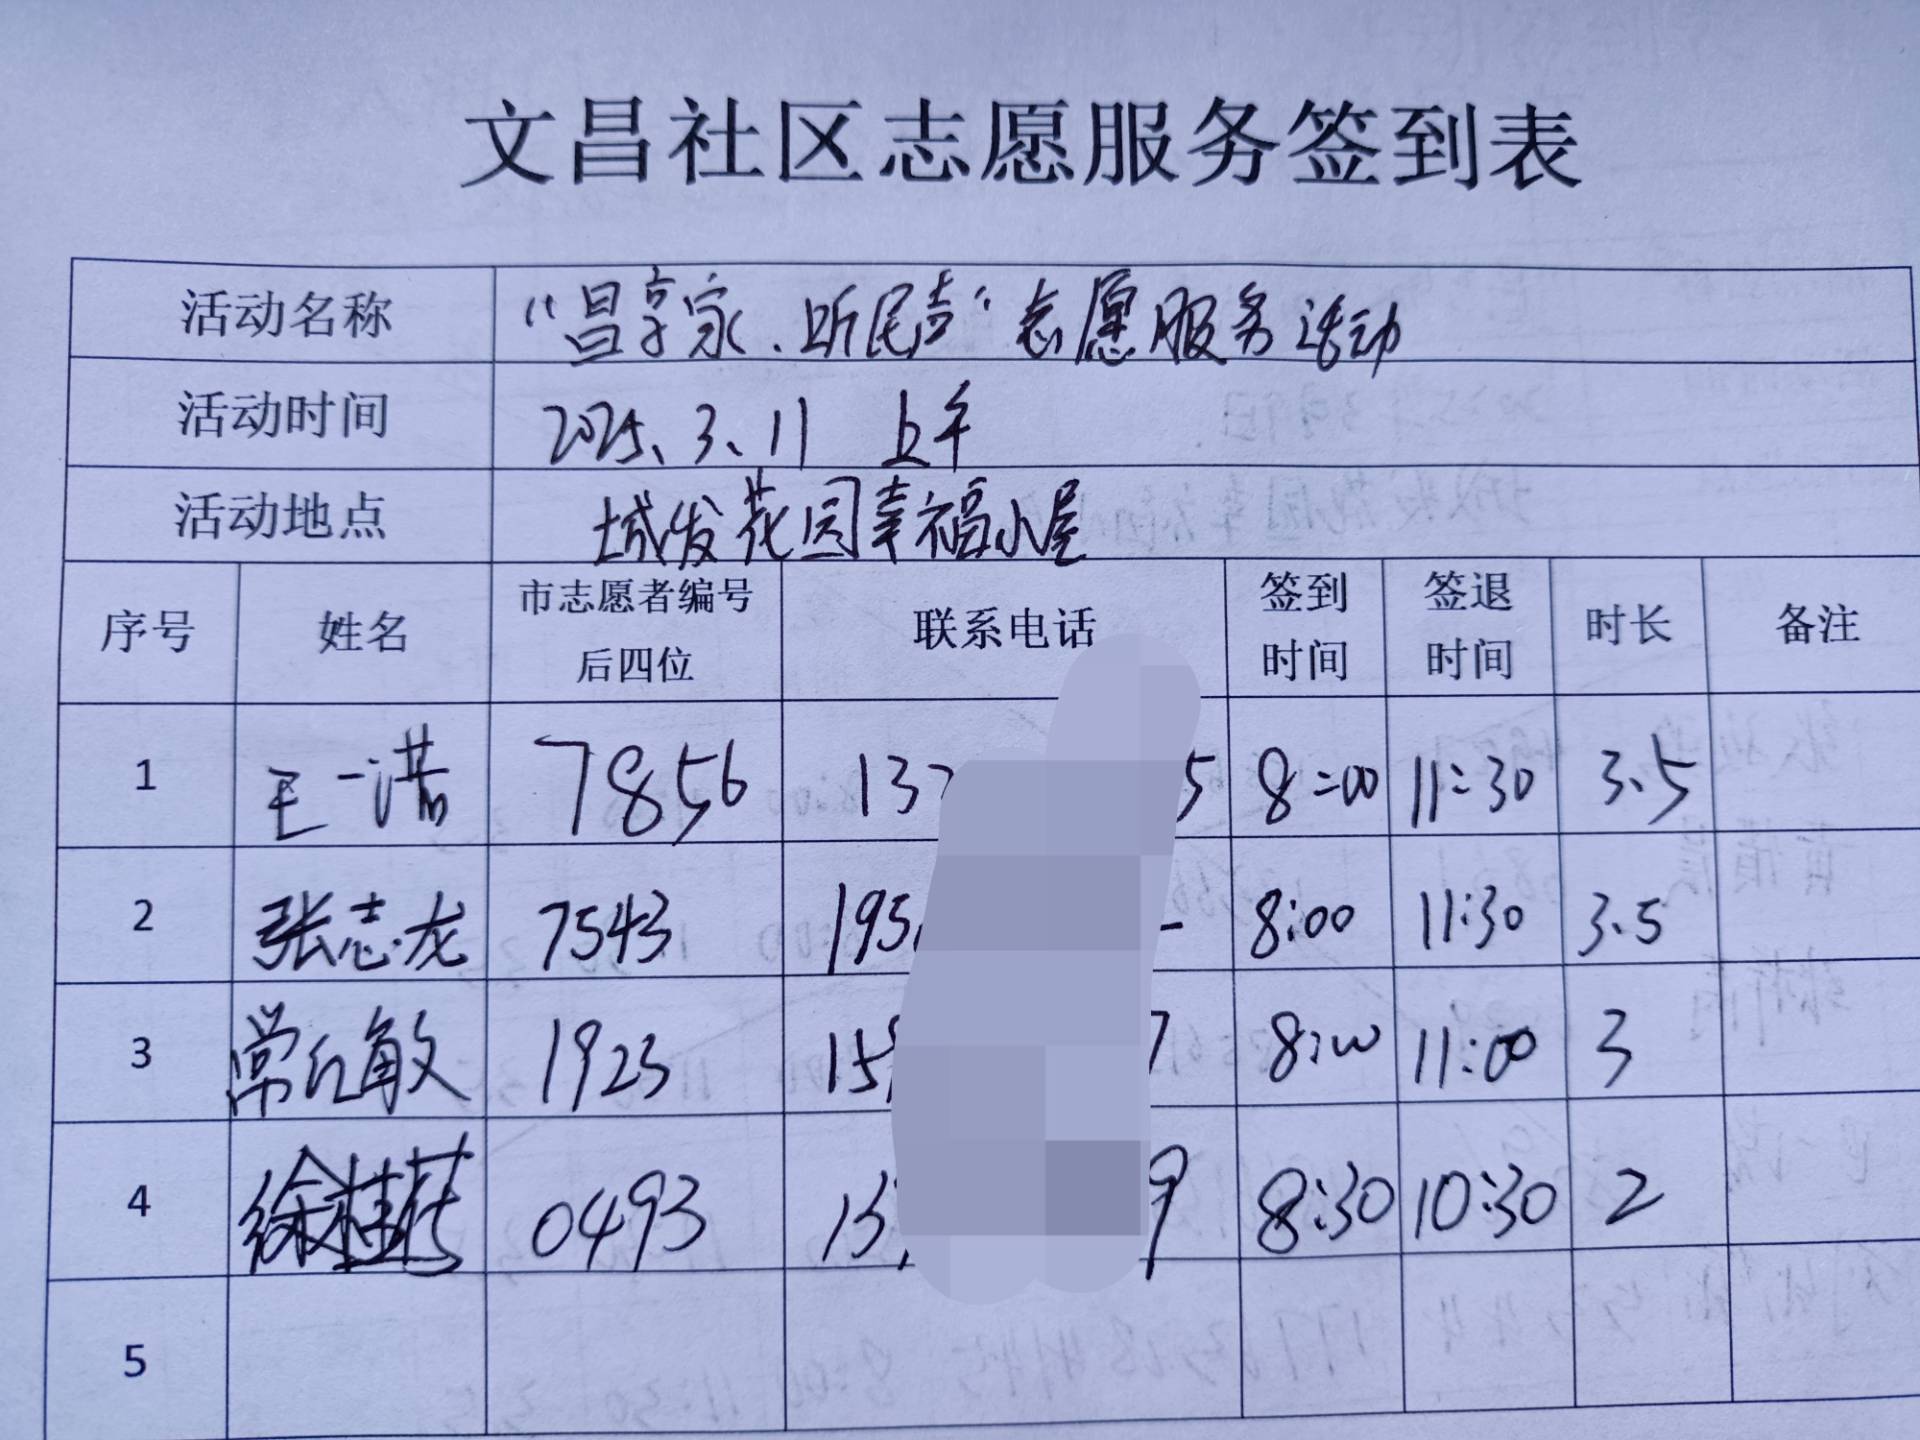 文昌社区志愿服务签到表
活动名称 “昌享家、听民声”志愿服务活动
活动时间 2025、3、11 上午
活动地点 城发花园幸福小屋
序号 姓名 市志愿者编号后四位 联系电话 签到时间 签退时间 时长 备注
1 王一诺 7856 137 5 8:00 11:30 3.5
2 张志龙 7543 195 8:00 11:30 3.5
3 常红敏 1923 15 7 8:00 11:00 3
4 徐桂 0493 13 9 8:30 10:30 2
5